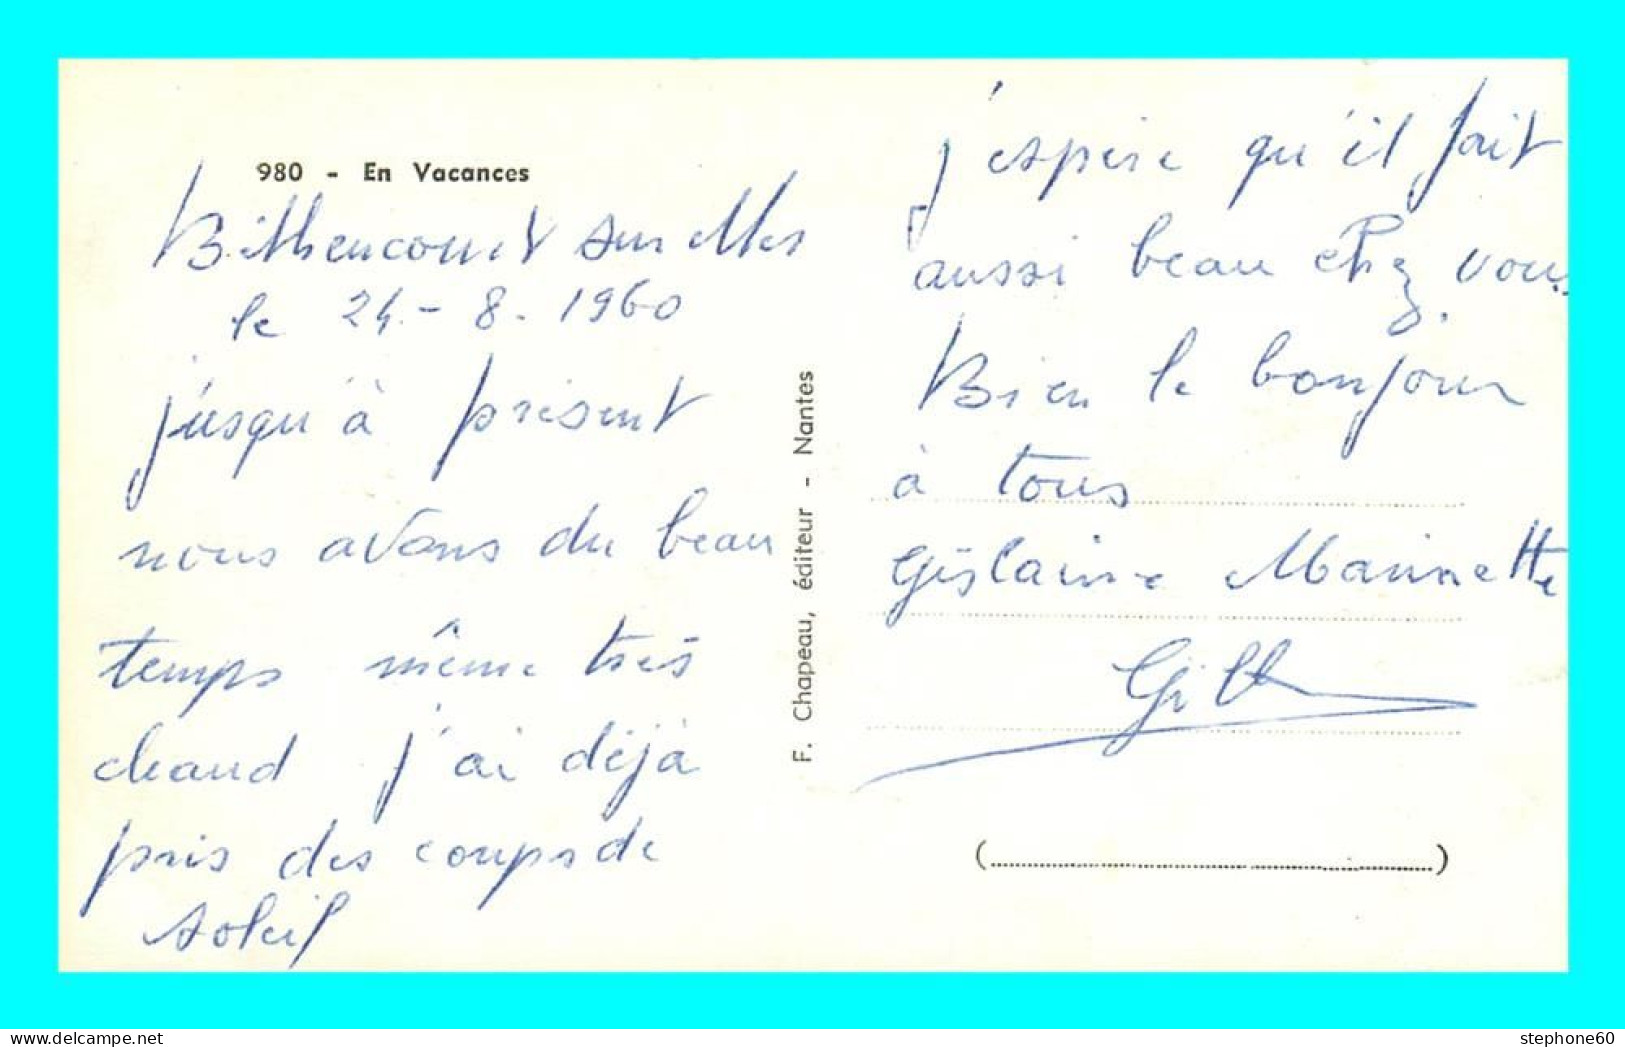 980 - En Vacances
Bithencourt sur Mer
le 24 - 8 - 1960
jusqu'à présent
nous avons du beau
temps même très
chaud j'ai déjà
pris des coups de
soleil
F. Chapeau, éditeur - Nantes
j'espère qu'il fait
aussi beau chez vous.
Bien le bonjour
à tous
Gislaine Marinette
(
)
stephone60